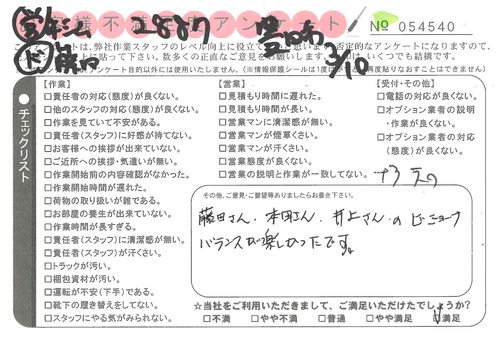 様不満 アンケート
№ 054540
2887
3/10
このアンケートは、弊社作業スタッフのレベル向上に役立て
に貼って下さい。数多くの正直なご意見をお願いします。
いくつでも結構です。
アンケート目的以外には使用いたしません。(※情報保護シールは1度
再度貼りなおすことはできません)
チェックリスト
【作業】
□責任者の対応(態度)が良くない。
□他のスタッフの対応(態度)が良くない。
□作業を見ていて不安がある。
□責任者(スタッフ)に好感が持てない。
□お客様への挨拶が出来ていない。
□ご近所への挨拶・気遣いが無い。
□作業開始前の内容確認がなかった。
□作業開始時間が遅れた。
□荷物の取り扱いが雑である。
□お部屋の養生が出来ていない。
□作業時間が長すぎる。
□責任者(スタッフ)に清潔感が無い。
□責任者(スタッフ)が汗くさい。
□トラックが汚い。
□梱包資材が汚い。
□運転が不安(下手)である。
□靴下の履き替えをしてない。
□スタッフにやる気がみられない。
【営業】
□見積もり時間に遅れた。
□見積もり時間が長い。
□営業マンに清潔感が無い。
□営業マンが煙草くさい。
□営業マンが汗くさい。
□営業態度が良くない。
□営業の説明と作業が一致してない。
【受付・その他】
□電話の対応が良くない。
□オプション業者の説明
・作業が良くない。
□オプション業者の対応
(態度)が良くない。
その他、ご意見・ご要望等ありましたらお書き下さい。
藤田さん、本田さん、井上さん の
バランスが楽しかったです。
☆当社をご利用いただきまして、ご満足いただけたでしょうか?
□不満 □やや不満 □普通 □やや満足 ☑満足